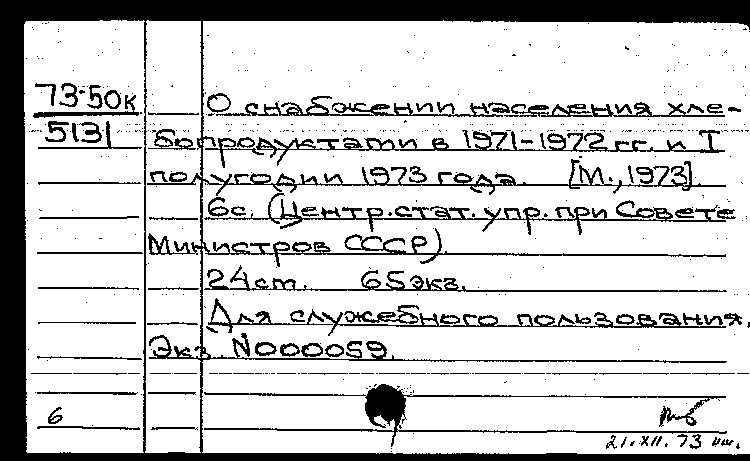 73-50к
5131
О снабжении населения хле-
бопродуктами в 1971-1972 гг. и I
полугодии 1973 года. [М., 1973].
6с. (Центр.стат. упр. при Совете
Министров СССР)
24 ст. 65 экз.
Для служебного пользования.
Экз. N000059.
6
21.XII.73